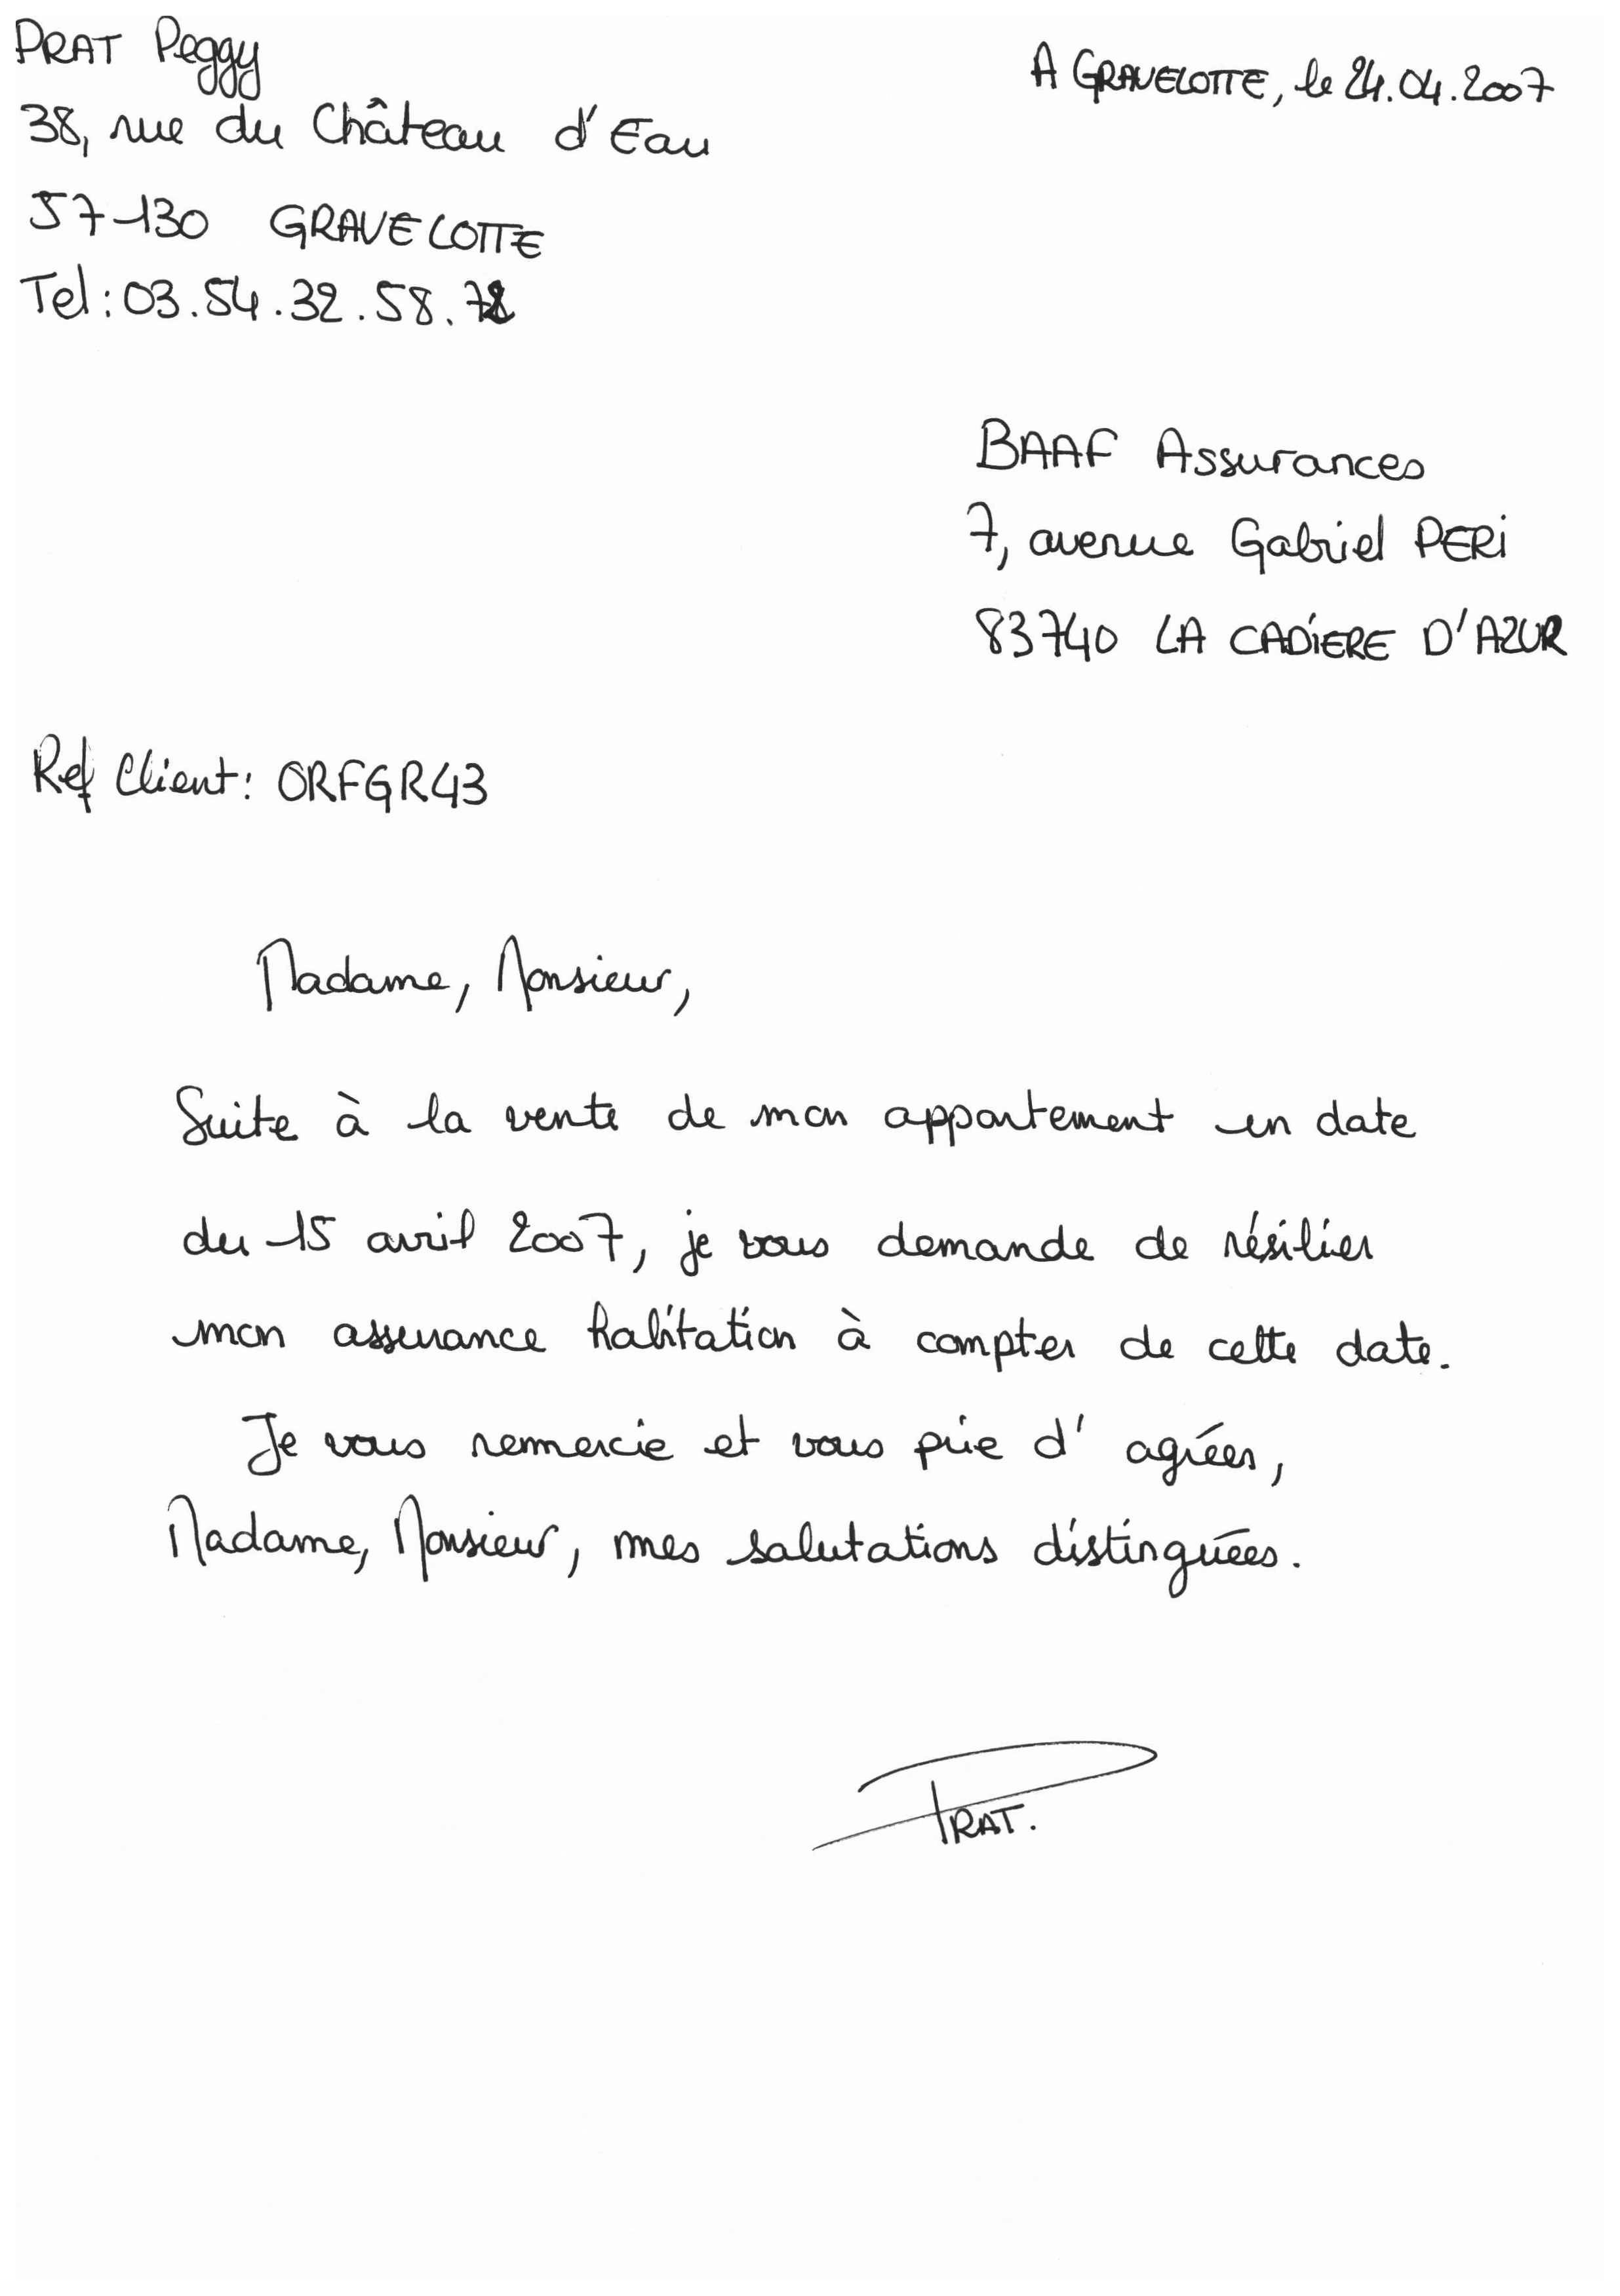 PRAT Peggy
A GRAVELOTTE, le 24.04.2007
38, rue du Château d'Eau
57130 GRAVELOTTE
Tel: 03.54.32.58.78
BAAF Assurances
7, avenue Gabriel PERI
83740 LA CADIERE D'AZUR
Ref Client: ORFGR43
Madame, Monsieur,
Suite à la vente de mon appartement en date
du 15 avril 2007, je vous demande de résilier
mon assurance habitation à compter de cette date.
Je vous remercie et vous prie d'agréer,
Madame, Monsieur, mes salutations distinguées.
PRAT.